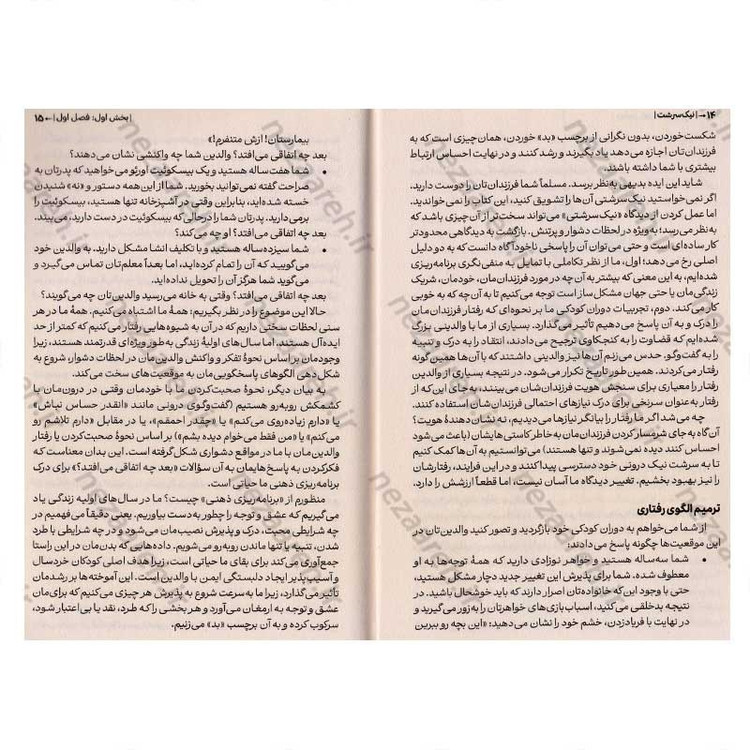 ۱۴ → | نیک‌سرشت |
شکست‌خوردن، بدون نگرانی از برچسب «بد» خوردن، همان چیزی است که به
فرزندان‌تان اجازه می‌دهد یاد بگیرند و رشد کنند و در نهایت احساس ارتباط
بیشتری با شما داشته باشند.
شاید این ایده بدیهی به‌نظر برسد. مسلماً شما فرزندان‌تان را دوست دارید.
اگر نمی‌خواستید نیک‌سرشتی آن‌ها را تشویق کنید، این کتاب را نمی‌خواندید.
اما عمل کردن از دیدگاه «نیک‌سرشتی» می‌تواند سخت‌تر از آن چیزی باشد که
به نظر می‌رسد؛ به‌ویژه در لحظات دشوار و پرتنش. بازگشت به دیدگاهی محدودتر
کار ساده‌ای است و حتی می‌توان آن را پاسخی ناخودآگاه دانست که به دو دلیل
اصلی رخ می‌دهد؛ اول، ما از نظر تکاملی با تمایل به منفی‌نگری برنامه‌ریزی
شده‌ایم، به این معنی که بیشتر به آن چه در مورد فرزندان‌مان، خودمان، شریک
زندگی‌مان یا حتی جهان مشکل‌ساز است توجه می‌کنیم تا به آن‌چه که به خوبی
کار می‌کند. دوم، تجربیات دوران کودکی ما بر نحوه‌ای که رفتار فرزندان‌مان
را درک و به آن پاسخ می‌دهیم تأثیر می‌گذارد. بسیاری از ما با والدینی بزرگ
شده‌ایم که قضاوت را به کنجکاوی ترجیح می‌دادند، انتقاد را به درک و تنبیه
را به گفت‌وگو. حدس می‌زنم آن‌ها نیز والدینی داشتند که با آن‌ها همین گونه
رفتار می‌کردند. همین طور تاریخ تکرار می‌شود. در نتیجه بسیاری از والدین
رفتار را معیاری برای سنجش هویت فرزندان‌شان می‌بینند، به‌جای این‌که از
رفتار به‌عنوان سرنخی برای درک نیازهای احتمالی فرزندان‌شان استفاده کنند.
چه می‌شد اگر ما رفتار را بیانگر نیازها می‌دیدیم، نه نشان‌دهندهٔ هویت؟
آن‌گاه به‌جای شرمسار کردن فرزندان‌مان به خاطر کاستی‌هایشان (باعث می‌شود
احساس کنند دیده نمی‌شوند و تنها هستند) می‌توانستیم به آن‌ها کمک کنیم
تا به سرشت نیک درونی خود دسترسی پیدا کنند و در این فرایند، رفتارشان
را نیز بهبود بخشیم. تغییر دیدگاه ما آسان نیست، اما قطعاً ارزشش را دارد.
ترمیم الگوی رفتاری
از شما می‌خواهم به دوران کودکی خود بازگردید و تصور کنید والدین‌تان در
این موقعیت‌ها چگونه پاسخ می‌دادند:
• شما سه‌ساله هستید و خواهر نوزادی دارید که همهٔ توجه‌ها به او
معطوف شده. شما برای پذیرش این تغییر جدید دچار مشکل هستید،
حتی با وجود این‌که خانواده‌تان اصرار دارند که باید خوشحال باشید. در
نتیجه بدخلقی می‌کنید، اسباب‌بازی‌های خواهرتان را به زور می‌گیرید و
در نهایت با فریادزدن، خشم خود را نشان می‌دهید: «این بچه رو ببرین
| بخش اول: فصل اول | ← ۱۵
بیمارستان! ازش متنفرم!»
بعد چه اتفاقی می‌افتد؟ والدین شما چه واکنشی نشان می‌دهند؟
• شما هفت‌ساله هستید و یک بیسکوئیت اورئو می‌خواهید که پدرتان به
صراحت گفته نمی‌توانید بخورید. شما از این همه دستور و «نه» شنیدن
خسته شده‌اید، بنابراین وقتی در آشپزخانه تنها هستید، بیسکوئیت را
برمی‌دارید. پدرتان شما را درحالی‌که بیسکوئیت در دست دارید، می‌بیند.
بعد چه اتفاقی می‌افتد؟ او چه می‌کند؟
• شما سیزده‌ساله هستید و با تکلیف انشا مشکل دارید. به والدین خود
می‌گویید که آن را تمام کرده‌اید، اما بعداً معلم‌تان تماس می‌گیرد و
می‌گوید شما هرگز آن را تحویل نداده‌اید.
بعد چه اتفاقی می‌افتد؟ وقتی به خانه می‌رسید والدین‌تان چه می‌گویند؟
حالا این موضوع را در نظر بگیریم: همهٔ ما اشتباه می‌کنیم. همهٔ ما در هر
سنی لحظات سختی داریم که در آن به شیوه‌هایی رفتار می‌کنیم که کمتر از حد
ایده‌آل هستند. اما سال‌های اولیهٔ زندگی به طور ویژه‌ای قدرتمند هستند، زیرا
وجودمان بر اساس نحوهٔ تفکر و کنش والدین‌مان در لحظات دشوار، شروع به
شکل‌دهی الگوهای پاسخگویی‌مان به موقعیت‌های سخت می‌کند.
به بیان دیگر، نحوهٔ صحبت‌کردن ما با خودمان وقتی در درون‌مان با
کشمکش روبه‌رو هستیم (گفت‌وگوی درونی مانند «انقدر حساس نباش»
یا «دارم زیاده‌روی می‌کنم» یا «چقدر احمقم»، یا در مقابل «دارم تلاشم رو
می‌کنم» یا «من فقط می‌خوام دیده بشم») بر اساس نحوهٔ صحبت‌کردن یا رفتار
والدین‌مان با ما در مواقع دشواری شکل گرفته است. این بدان معناست که
فکرکردن به پاسخ‌هایمان به آن سؤالات «بعد چه اتفاقی می‌افتد؟» برای درک
برنامه‌ریزی ذهنی ما حیاتی است.
منظورم از «برنامه‌ریزی ذهنی» چیست؟ ما در سال‌های اولیه زندگی یاد
می‌گیریم که عشق و توجه را چطور به‌دست بیاوریم. یعنی دقیقاً می‌فهمیم در
چه شرایطی محبت، درک و پذیرش نصیب‌مان می‌شود و در چه شرایطی با طرد
شدن، تنبیه یا تنها ماندن روبه‌رو می‌شویم. داده‌هایی که بدن‌مان در این راستا
جمع‌آوری می‌کند برای بقای ما حیاتی است، زیرا هدف اصلی کودکان خردسال
و آسیب‌پذیر ایجاد دلبستگی ایمن با والدین است. این آموخته‌ها بر رشدمان
تأثیر می‌گذارد، زیرا ما به سرعت شروع به پذیرش هر چیزی می‌کنیم که برای‌مان
عشق و توجه به ارمغان می‌آورد و هر بخشی را که طرد، نقد یا بی‌اعتبار شود،
سرکوب کرده و به آن برچسب «بد» می‌زنیم.
nezareh.ir